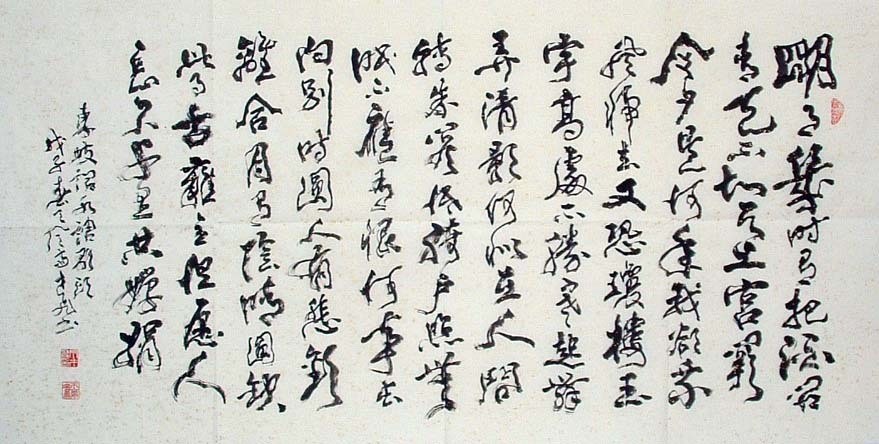 明月幾時有把酒問
青天不知天上宮闕
今夕是何年我欲乘
風歸去又恐瓊樓玉
宇高處不勝寒起舞
弄清影何似在人間
轉朱閣低綺戶照無
眠不應有恨何事長
向別時圓人有悲歡
離合月有陰晴圓缺
此事古難全但願人
長久千里共嬋娟
東坡詞水調歌頭
戊子春